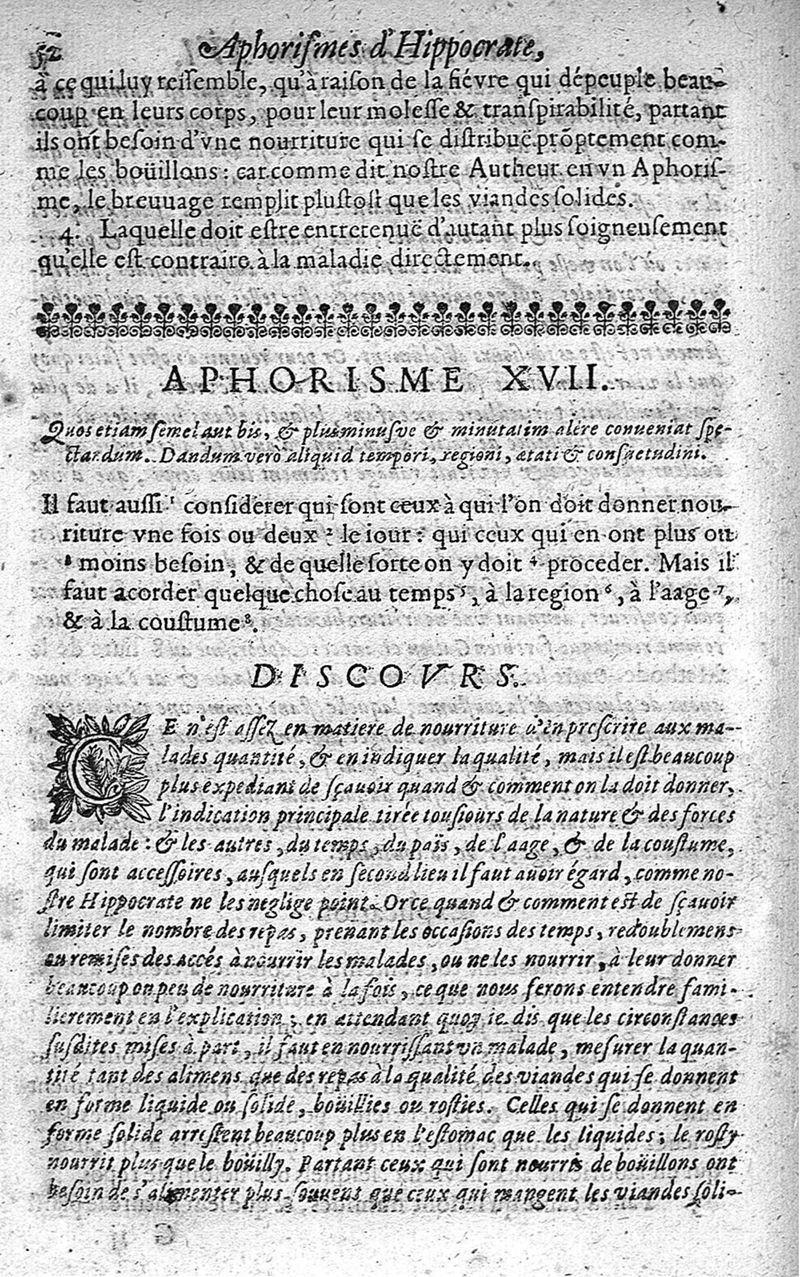 52 Aphorismes d'Hippocrate,
à ce qui luy ressemble, qu'à raison de la fiévre qui dépeuple beau-
coup en leurs corps, pour leur molesse & transpirabilité, partant
ils ont besoin d'vne nourriture qui se distribuë prõptement com-
me les boüillons : car comme dit nostre Autheur en vn Aphoris-
me, le breuuage remplit plustost que les viandes solides.
4. Laquelle doit estre entretenuë d'autant plus soigneusement
qu'elle est contraire à la maladie directement.
APHORISME XVII.
Quos etiam semel aut bis, & plus minusve & minutatim alere conueniat spe-
ctandum. Dandum verò aliquid tempori, regioni, ætati & consuetudini.
Il faut aussi ¹ considerer qui sont ceux à qui l'on doit donner nou-
riture vne fois ou deux ² le iour : qui ceux qui en ont plus ou
³ moins besoin, & de quelle sorte on y doit ⁴ proceder. Mais il
faut acorder quelque chose au temps ⁵, à la region ⁶, à l'aage ⁷,
& à la coustume ⁸.
DISCOVRS.
CE n'est assez en matiere de nourriture d'en prescrire aux ma-
lades quantité, & en indiquer la qualité, mais il est beaucoup
plus expediant de sçauoir quand & comment on la doit donner,
l'indication principale tirée tousiours de la nature & des forces
du malade : & les autres, du temps, du païs, de l'aage, & de la coustume,
qui sont accessoires, ausquels en second lieu il faut auoir égard, comme no-
stre Hippocrate ne les neglige point. Or ce quand & comment est de sçauoir
limiter le nombre des repas, prenant les occasions des temps, redoublemens
ou remises des accés à nourrir les malades, ou ne les nourrir, à leur donner
beaucoup ou peu de nourriture à la fois, ce que nous ferons entendre fami-
lierement en l'explication ; en attendant quoy ie dis que les circonstances
susdites mises à part, il faut en nourrissant vn malade, mesurer la quan-
tité tant des alimens que des repas à la qualité des viandes qui se donnent
en forme liquide ou solide, boüillies ou rosties. Celles qui se donnent en
forme solide arrestent beaucoup plus en l'estomac que les liquides ; le rosty
nourrit plus que le boüilly. Partant ceux qui sont nourris de boüillons ont
besoin de s'alimenter plus souuent que ceux qui mangent les viandes soli-
G ij